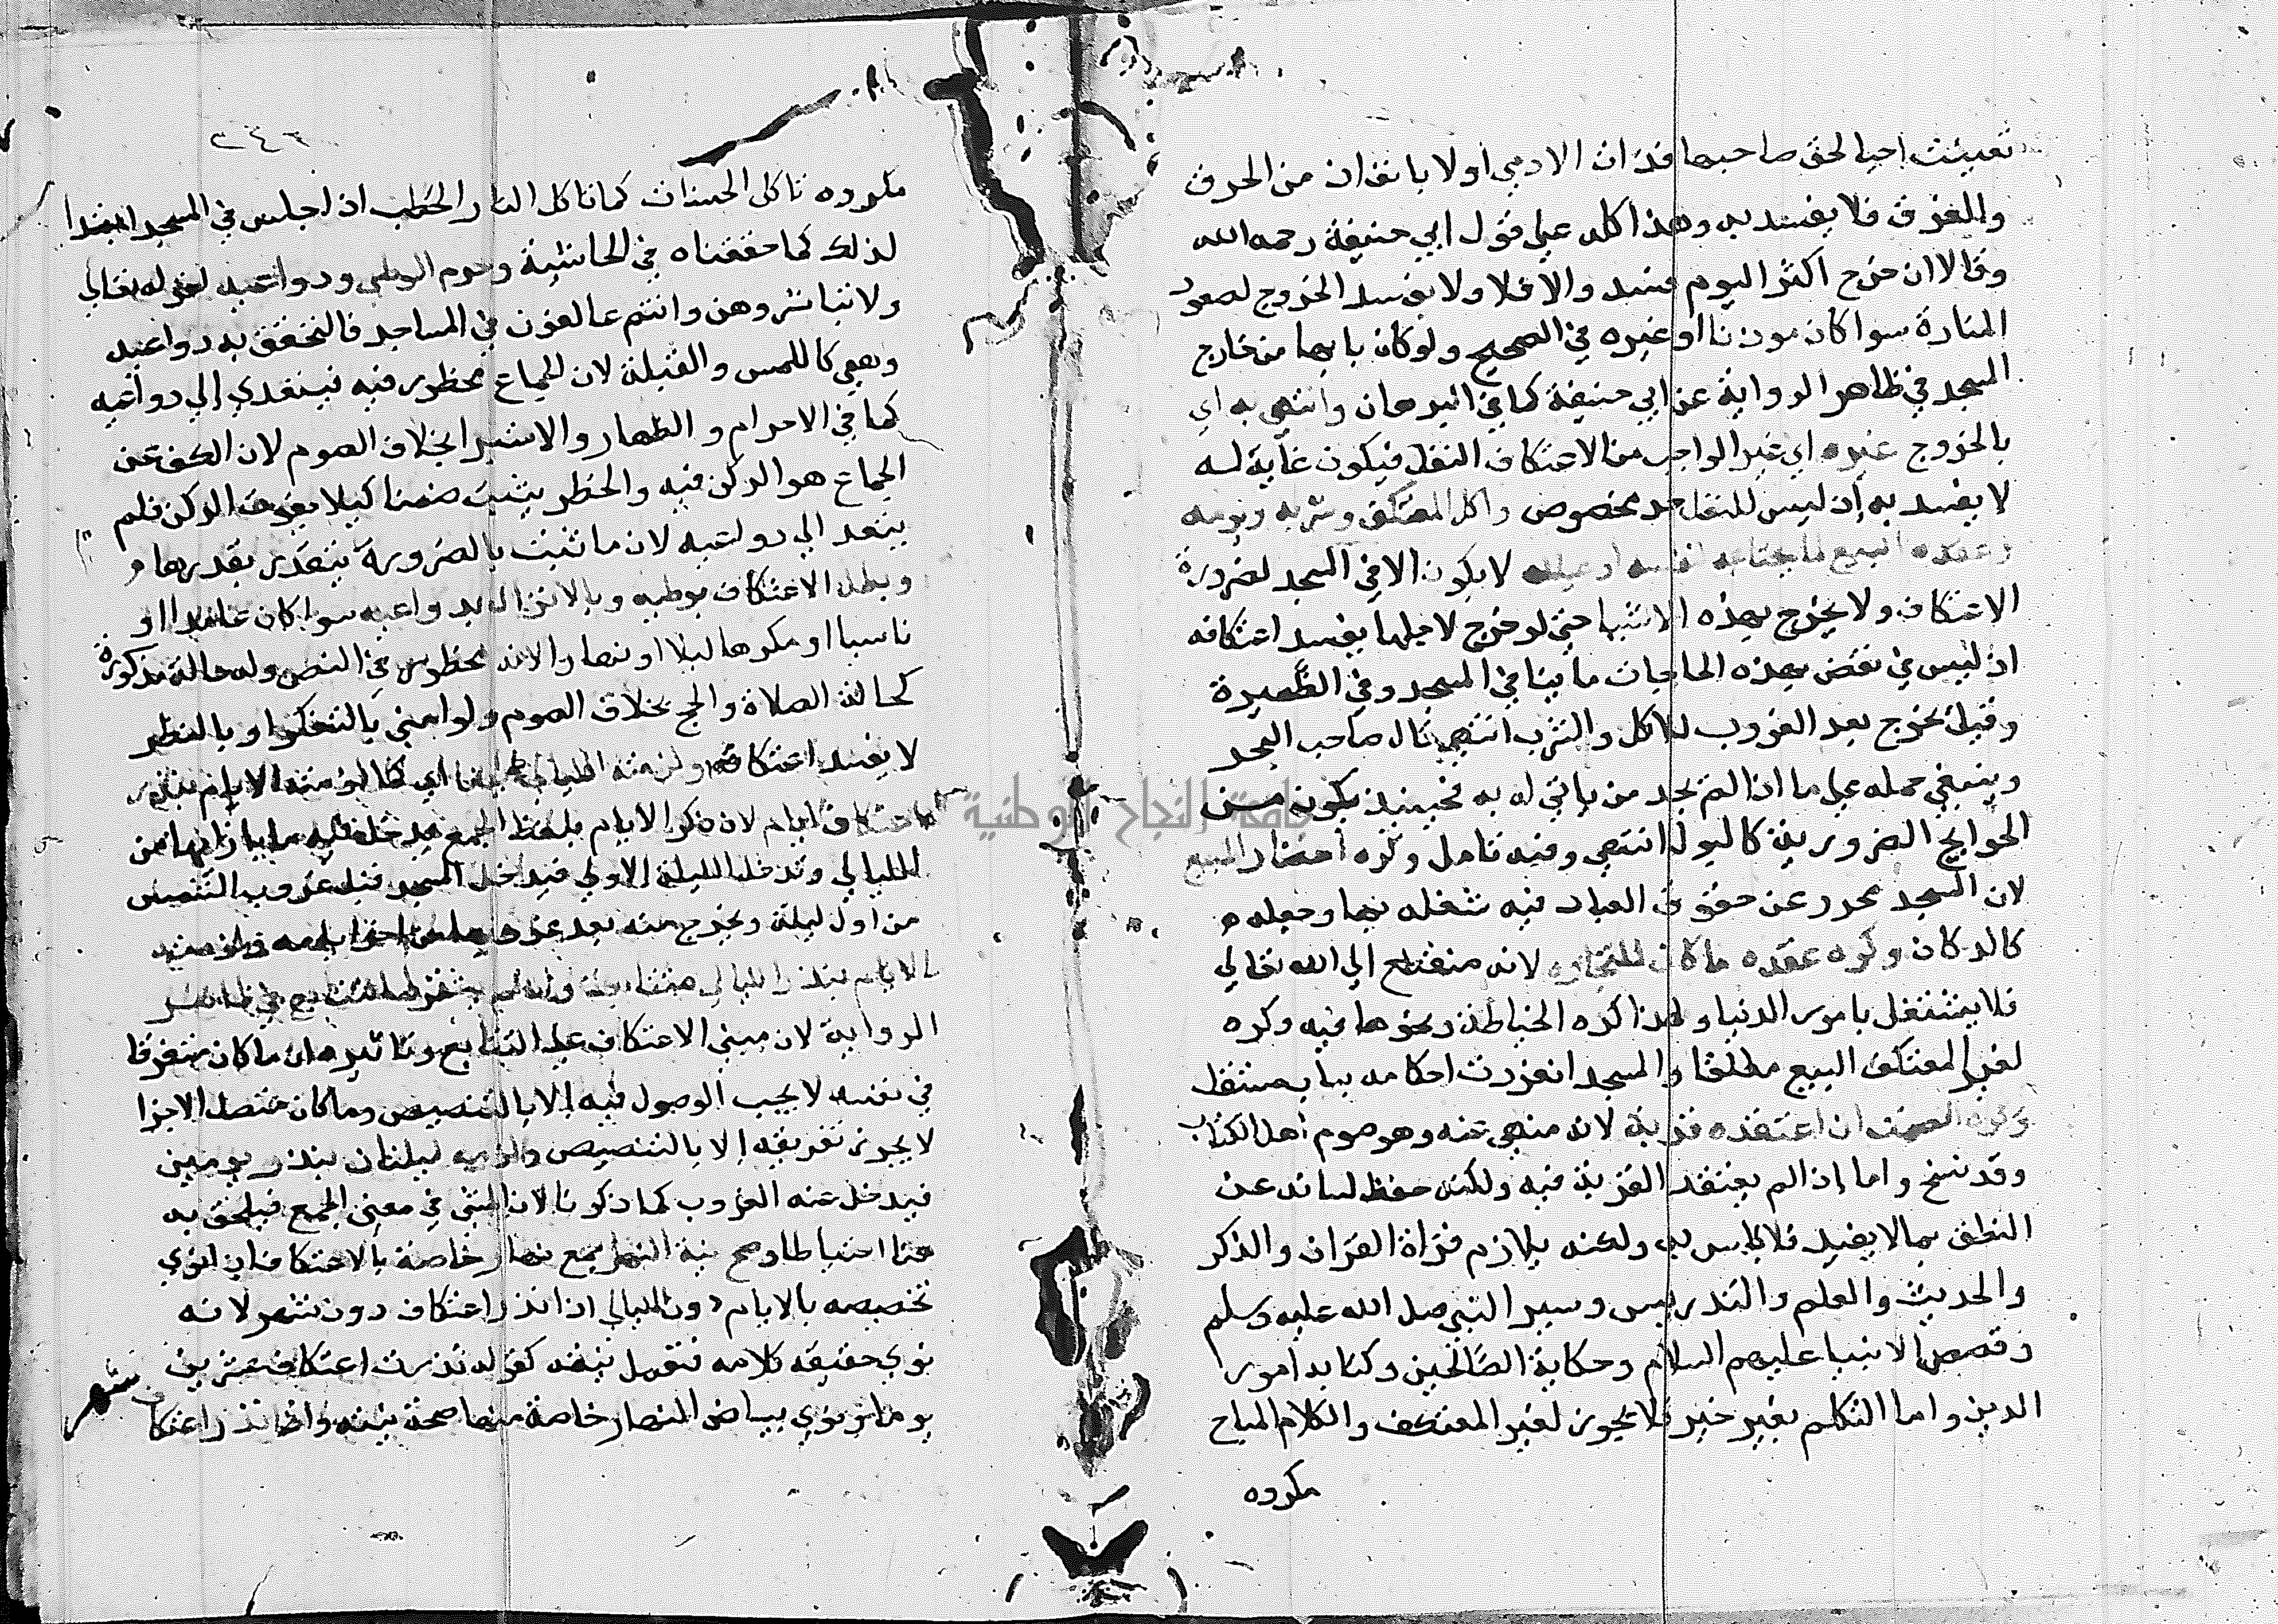 تعينت احيا لحق صاحبها قدران الادمي اولا بانقران من الحرق
والغرق فلا يفسد به وهذا كله علي قول ابي حنيفة رحمه الله
وقالا ان خرج اكثر اليوم فسد والا فلا ولا يفسد الخروج لصعود
المنارة سوا كان موذنا او غيره في الصحيح ولو كان بابها من خارج
المسجد في ظاهر الرواية عن ابي حنيفة كما في البرهان وانتهي به اي
بالخروج غيره اي غير الواجب من الاعتكاف النفل فيكون غاية له
لا يفسد به إذ ليس للنفل حد مخصوص واكل المعتكف وشربه ونومه
وعقده البيع لما يحتاجه لنفسه او عياله لا يكون الا في المسجد لضرورة
الاعتكاف ولا يخرج بهذه الاشيا حتي لو خرج لاجلها يفسد اعتكافه
اذ ليس في نقض بهذه الحاجات ما ينافي المسجد وفي الظهيرة
وقيل يخرج بعد الغروب للاكل والشرب انتهي قال صاحب البحر
وينبغي حمله علي ما اذا لم يجد من ياتي له به فحينيذ يكون من
الحوايج الضرورية كالبول انتهي وفيه تامل وكره احضار المبيع
لان المسجد محرر عن حقوق العباد فيه شغله بها وجعله
كالدكان وكره عقده ما كان للتجارة لانه منقطع الي الله تعالي
فلا يشتغل بامور الدنيا ولهذا كره الخياطة ونحوها فيه وكره
لغير المعتكف البيع مطلقا والمسجد انفردت احكامه بباب مستقل
وكره الصمت ان اعتقده قربة لانه منهي عنه وهو صوم اهل الكتاب
وقد نسخ واما إذا لم يعتقد القربة فيه ولكنه حفظ لسانه عن
النطق بما لا يفيد فلا باس به ولكنه يلازم قراة القران والذكر
والحديث والعلم والتدريس وسير النبي صلي الله عليه وسلم
وقصص الانبيا عليهم السلام وحكاية الصالحين وكتابة امور
الدين واما التكلم بغير خير فلا يجوز لغير المعتكف والكلام المباح
مكروه
٢٤٦
مكروه تاكل الحسنات كما تاكل النار الحطب اذا جلس في المسجد ابتدا
لذلك كما حققناه في الحاشية وحرم الوطي ودواعيه لقوله تعالي
ولا تباشروهن وانتم عاكفون في المساجد فالتحقق به دواعيه
وهي كاللمس والقبلة لان الجماع محظور فيه فيتعدي إلي دواعيه
كما في الاحرام والظهار والاستبرا بخلاف الصوم لان الكف عن
الجماع هو الركن فيه والحظر يثبت ضمنا كيلا يفوت الركن فلم
يتعد الي دواعيه لان ما ثبت بالضرورة يتقدر بقدرها و
وبطل الاعتكاف بوطيه وبالانزال بدواعيه سوا كان عامدا او
ناسيا او مكرها ليلا او نهارا لانه محظور في النص وله حالة مذكرة
كحالة الصلاة والحج بخلاف الصوم ولو امني بالتفكر او بالنظر
لا يفسد اعتكافه ولزمته الليالي ايضا اي كما لزمته الايام بنذر
اعتكاف ايام لان ذكر الايام بلفظ الجمع يدخل فيه ما بازايها من
الليالي وتدخل الليلة الاولي فيدخل المسجد قبل غروب الشمس
من اول ليلة ويخرج منه بعد غروبها من اخر ايامه ولزمته
الايام بنذر الليالي متتابعة وان لم يشترط التتابع في ظاهر
الرواية لان مبني الاعتكاف علي التتابع وتاثيره ان ما كان متفرقا
في نفسه لا يجب الوصول فيه إلا بالتنصيص وما كان متصل الاجزا
لا يجوز تفريقه إلا بالتنصيص ولزمه ليلتان بنذر يومين
فيدخل عند الغروب كما ذكرنا لان المثني في معني الجمع فيلحق به
هنا احتياطا وصح نية النهر جمع نهار خاصة بالاعتكاف ان نوي
تخصيصه بالايام دون الليالي اذا نذر اعتكاف دون شهر لانه
نوي حقيقة كلامه فتعمل نيته كقوله نذرت اعتكاف عشرين
يوما ونوي بياض النهار خاصة منها صحة نيته واذا نذر اعتكاف
شهر
جامعة النجاح الوطنية